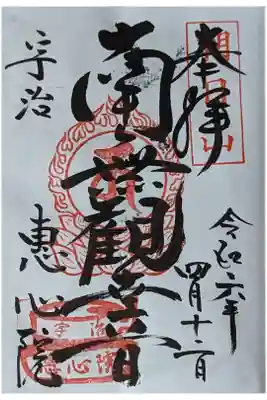 奉拝
令和六年
四月十二日
南無観世音
宇治
恵心院
宇治
恵心院